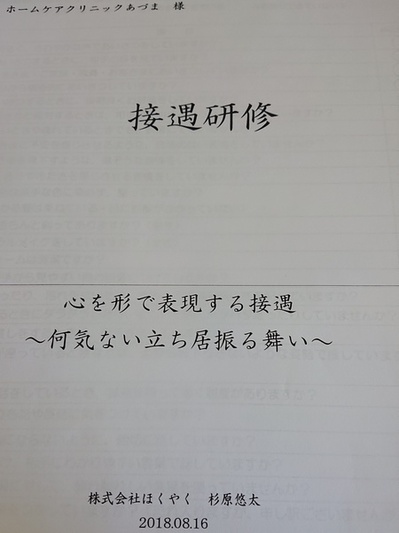 ホームケアクリニックあづま　様
接遇研修
心を形で表現する接遇
～何気ない立ち居振る舞い～
株式会社ほくやく　杉原悠太
2018.08.16